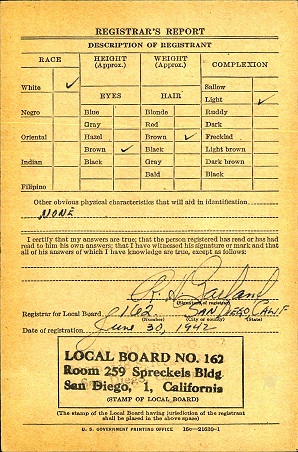 REGISTRAR'S REPORT
DESCRIPTION OF REGISTRANT
RACE HEIGHT (Approx.) WEIGHT (Approx.) COMPLEXION
White ✓ Sallow
EYES HAIR Light ✓
Negro Blue Blonde Ruddy
Gray Red Dark
Oriental Hazel Brown ✓ Freckled
Brown ✓ Black Light brown
Indian Black Gray Dark brown
Bald Black
Filipino
Other obvious physical characteristics that will aid in identification
NONE
I certify that my answers are true; that the person registered has read or has had
read to him his own answers; that I have witnessed his signature or mark and that
all of his answers of which I have knowledge are true, except as follows:
(Signature of registrar)
Registrar for Local Board 162 SAN DIEGO CALIF
(Number) (City or county) (State)
Date of registration June 30, 1942
LOCAL BOARD NO. 162
Room 259 Spreckels Bldg.
San Diego, 1, California
(STAMP OF LOCAL BOARD)
(The stamp of the Local Board having jurisdiction of the registrant
shall be placed in the above space)
U. S. GOVERNMENT PRINTING OFFICE 16c—21630-1